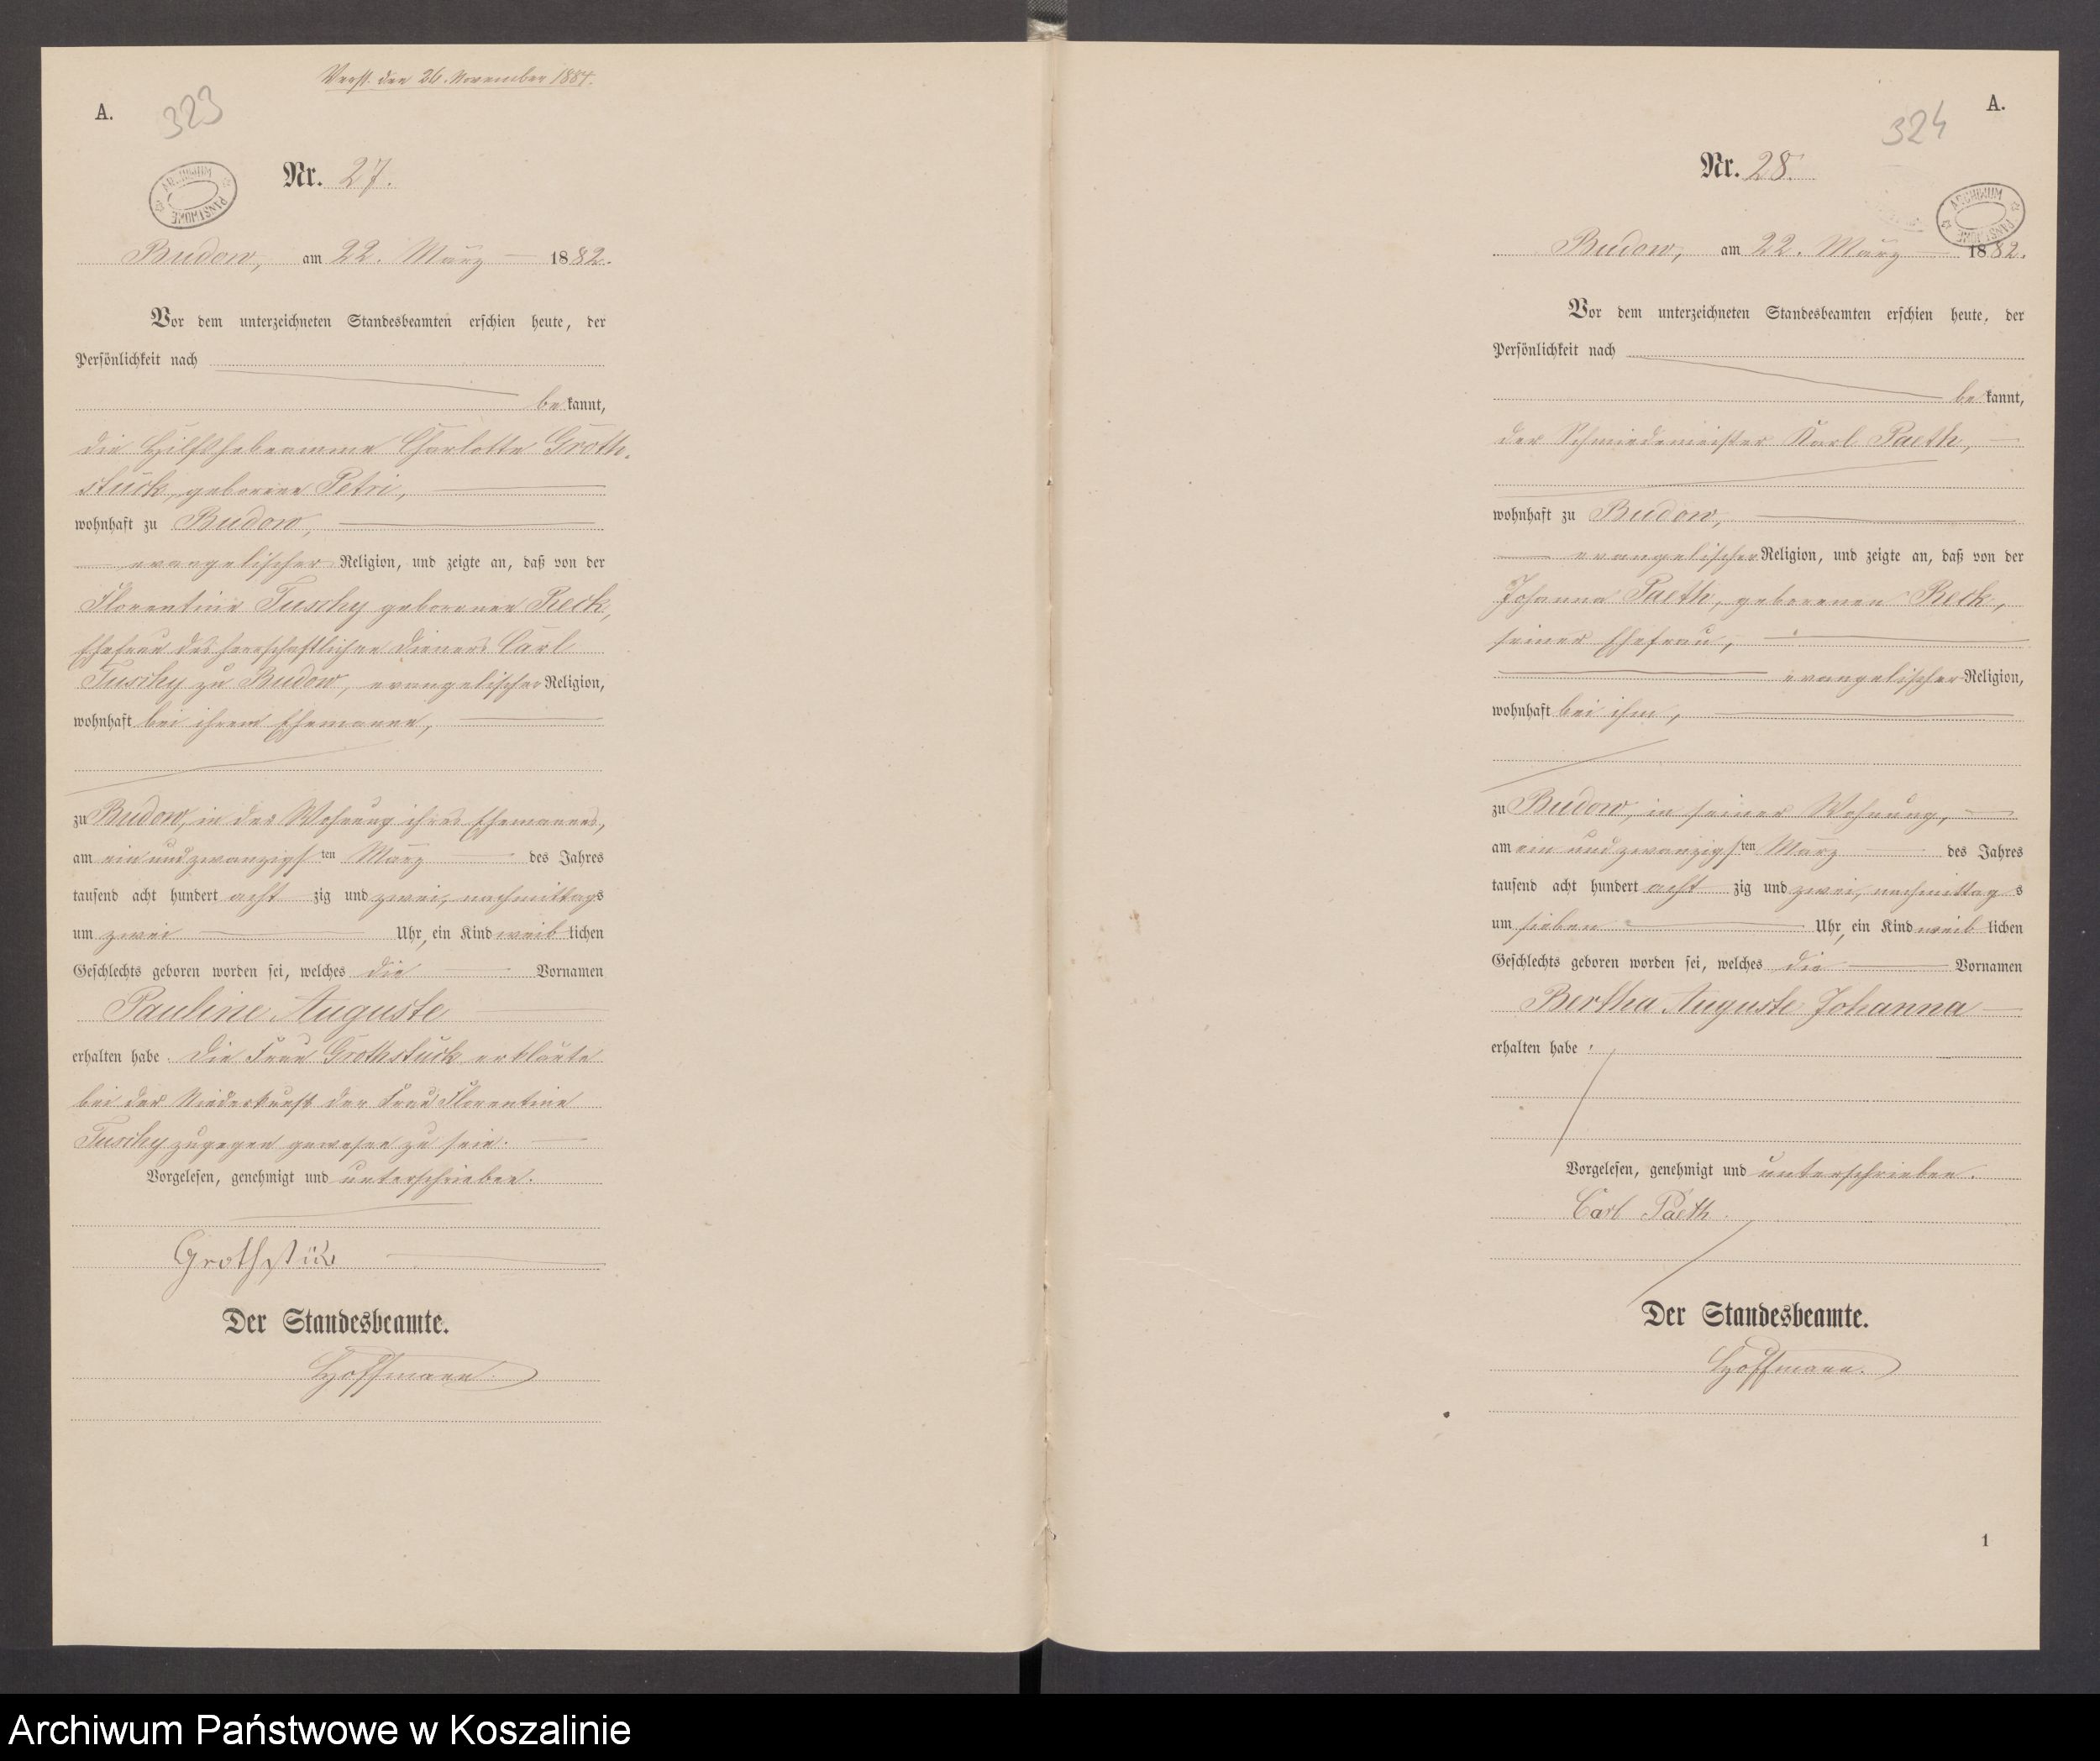 Verst. den 26. November 1884.
A.
323
ARCHIWUM PAŃSTWOWE
Nr. 27.
Budow, am 22. März 1882.
Vor dem unterzeichneten Standesbeamten erschien heute, der
Persönlichkeit nach
bekannt,
die Hilfshebeamme Charlotte Groth-
stück, geborene Petri,
wohnhaft zu Budow,
evangelischer Religion, und zeigte an, daß von der
Florentine Tuschy geborenen Reck,
Ehefrau des herrschaftlichen Dieners Carl
Tuschy zu Budow, evangelischer Religion,
wohnhaft bei ihrem Ehemanne,
zu Budow, in der Wohnung ihres Ehemannes,
am ein und zwanzigsten März des Jahres
tausend acht hundert achtzig und zwei, nachmittags
um zwei Uhr, ein Kind weiblichen
Geschlechts geboren worden sei, welches die Vornamen
Pauline Auguste
erhalten habe. Die Frau Grothstück erklärte
bei der Niederkunft der Frau Florentine
Tuschy zugegen gewesen zu sein.
Vorgelesen, genehmigt und unterschrieben.
Grothstück
Der Standesbeamte.
Hoffmann.
A.
324
ARCHIWUM PAŃSTWOWE
Nr. 28.
Budow, am 22. März 1882.
Vor dem unterzeichneten Standesbeamten erschien heute, der
Persönlichkeit nach
bekannt,
der Schmiedemeister Karl Paeth,
wohnhaft zu Budow,
evangelischer Religion, und zeigte an, daß von der
Johanna Paeth, geborenen Reck,
seiner Ehefrau,
evangelischer Religion,
wohnhaft bei ihm,
zu Budow, in seiner Wohnung,
am ein und zwanzigsten März des Jahres
tausend acht hundert achtzig und zwei, nachmittags
um sieben Uhr, ein Kind weiblichen
Geschlechts geboren worden sei, welches die Vornamen
Bertha Auguste Johanna
erhalten habe.
Vorgelesen, genehmigt und unterschrieben.
Carl Paeth.
Der Standesbeamte.
Hoffmann.
1
Archiwum Państwowe w Koszalinie